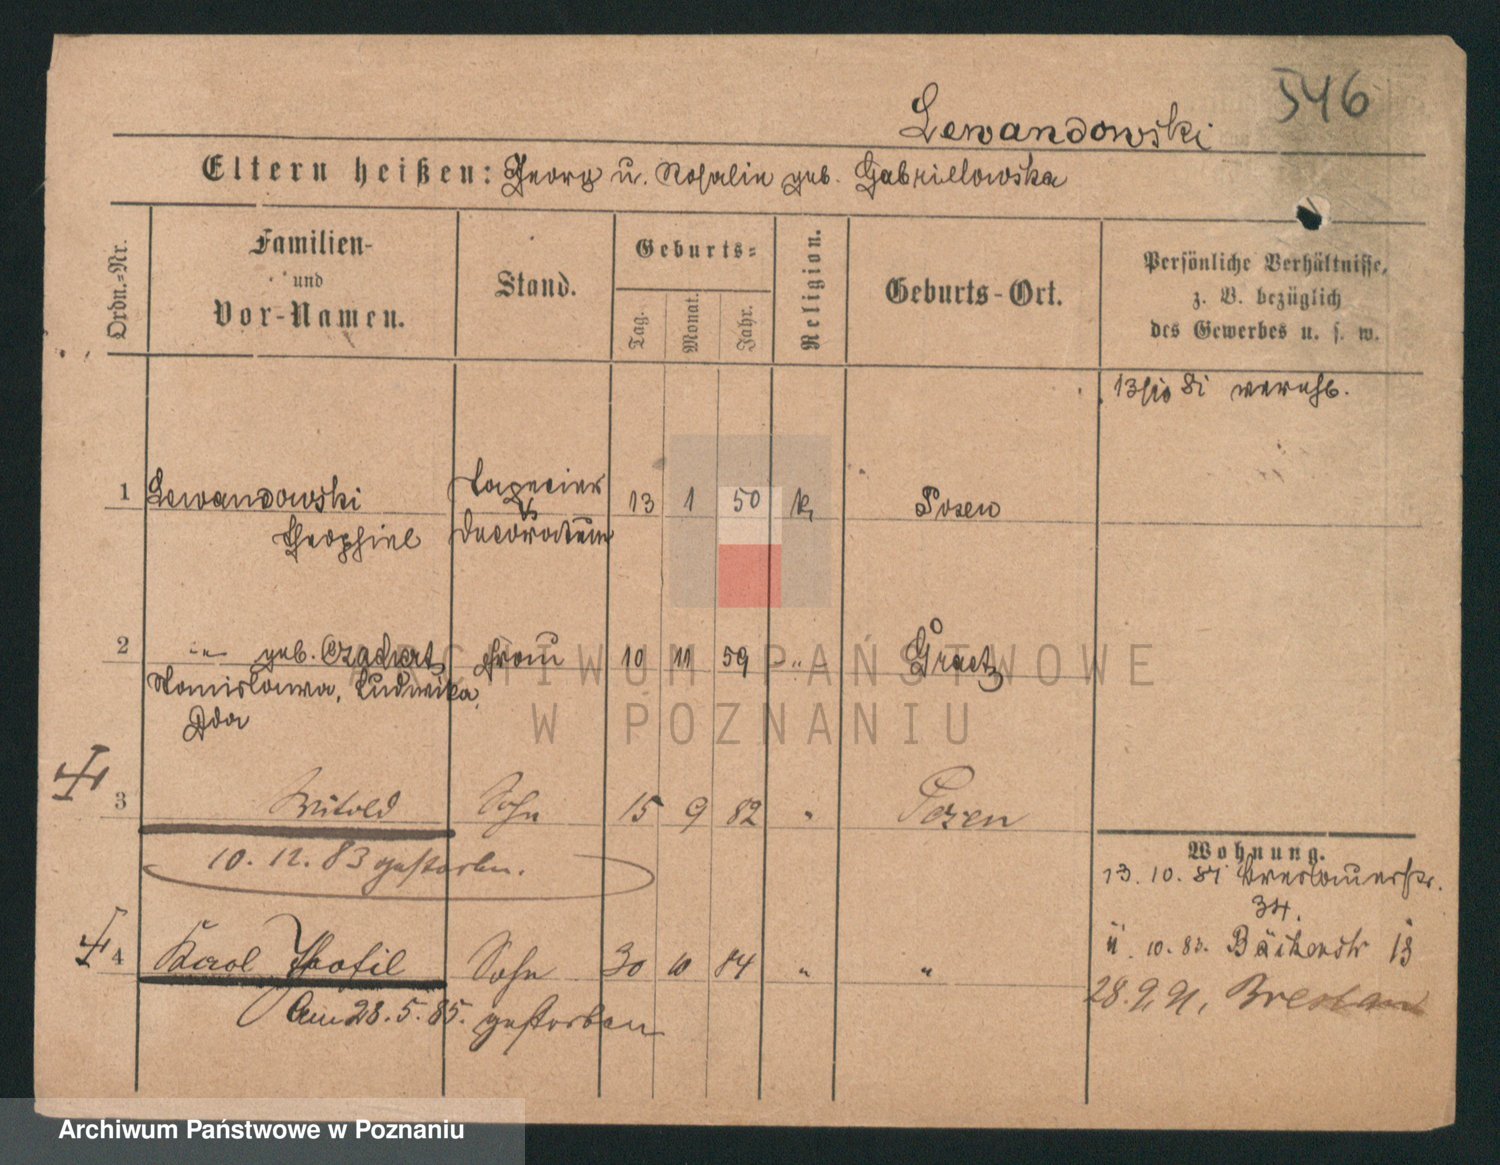 546
Lewandowski
Eltern heißen: Georg u. Rosalie geb. Gabrielowska
Ordn.=Nr.
Familien-
und
Vor-Namen.
Stand.
Geburts=
Tag.
Monat.
Jahr.
Religion.
Geburts-Ort.
Persönliche Verhältnisse,
z. B. bezüglich
des Gewerbes u. s. w.
13/10 81 verehl.
1 Lewandowski Tapezier 13 1 50 k. Posen
Theophiel Decorateur
2 geb. Frau 10 11 59 " Graetz
Stanislawa, Ludwika,
Ida
3 Witold Sohn 15 9 82 " Posen
10. 12. 83 gestorben.
Wohnung.
13. 10. 81 Breslauerstr.
34.
4 Karol Theofil Sohn 30 10 84 " "
ü. 10. 83. 13
Am 28. 5. 85. gestorben
28. 9. 91, Breslau
ARCHIWUM PAŃSTWOWE
W POZNANIU
Archiwum Państwowe w Poznaniu